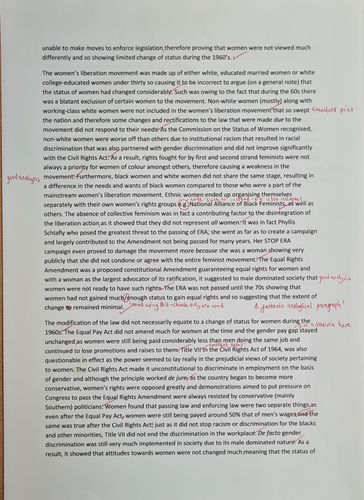 unable to make moves to enforce legislation, therefore proving that women were not viewed much
differently and so showing limited change of status during the 1960's.
The women's liberation movement was made up of either white, educated married women or white
college-educated women under thirty so causing it to be incorrect to argue (on a general note) that
the status of women had changed considerably. Such was owing to the fact that during the 60s there
was a blatant exclusion of certain women to the movement. Non-white women (mostly) along with
working-class white women were not included in the women's liberation movement that so swept excellent point
the nation and therefore some changes and rectifications to the law that were made due to the
movement did not respond to their needs. As the Commission on the Status of Women recognised,
non-white women were worse off than others due to institutional racism that resulted in racial
discrimination that was also partnered with gender discrimination and did not improve significantly
with the Civil Rights Act. As a result, rights fought for by first and second strand feminists were not
always a priority for women of colour amongst others, therefore causing a weakness in the
good analysis movement. Furthermore, black women and white women did not share the same stage, resulting in
a difference in the needs and wants of black women compared to those who were a part of the
mainstream women's liberation movement. Ethnic women ended up organising themselves
separately with their own women's rights groups e.g. National Alliance of Black Feminists, as well as
others. The absence of collective feminism was in fact a contributing factor to the disintegration of
the liberation action as it showed that they did not represent all women. It was in fact Phyllis
Schlafly who posed the greatest threat to the passing of ERA; she went as far as to create a campaign
and largely contributed to the Amendment not being passed for many years. Her STOP ERA
campaign even proved to damage the movement more because she was a woman showing very
publicly that she did not condone or agree with the entire feminist movement. The Equal Rights
Amendment was a proposed constitutional Amendment guaranteeing equal rights for women and
with a woman as the largest advocator of its ratification, it suggested to male dominated society that good analysis
women were not ready to have such rights. The ERA was not passed until the 70s showing that
women had not gained much/enough status to gain equal rights and so suggesting that the extent of
change to remained minimal. A fantastic analytical paragraph!
The modification of the law did not necessarily equate to a change of status for women during the
1960s. The Equal Pay Act did not amend much for women at the time and the gender pay gap stayed
unchanged, as women were still being paid considerably less than men doing the same job and
continued to lose promotions and raises to them. Title VII in the Civil Rights Act of 1964, was also
questionable in effect as the power seemed to lay really in the prejudicial views of society pertaining
to women. The Civil Rights Act made it unconstitutional to discriminate in employment on the basis
of gender and although the principle worked de jure, as the country began to become more
conservative, women's rights were opposed greatly and demonstrations aimed to put pressure on
Congress to pass the Equal Rights Amendment were always resisted by conservative (mainly
Southern) politicians. Women found that passing law and enforcing law were two separate things, as
even after the Equal Pay Act, women were still being payed around 50% that of men's wages and the
same was true after the Civil Rights Act; just as it did not stop racism or discrimination for the blacks
and other minorities, Title VII did not end the discrimination in the workplace. De facto gender
discrimination was still very much implemented in society due to its male dominated nature. As a
result, it showed that attitudes towards women were not changed much, meaning that the status of